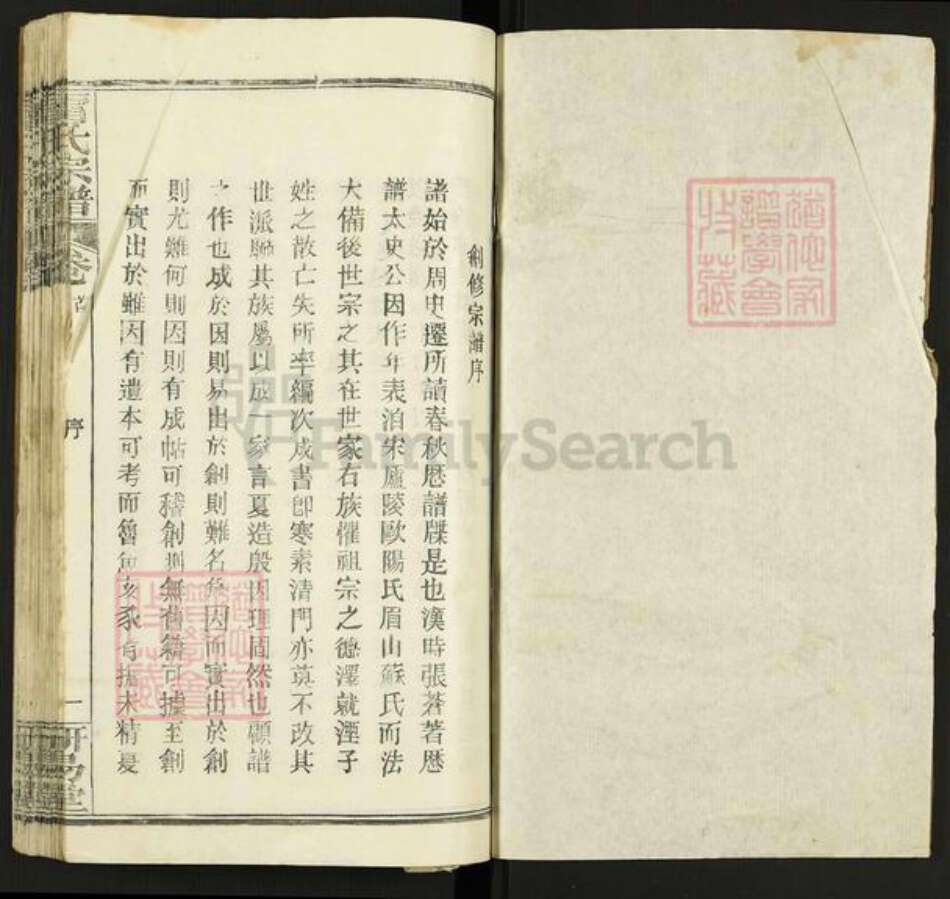 創修宗譜序
諸始於周史遷所讀春秋厯譜牒是也漢時張蒼著厯
譜太史公因作年表洎宋廬陵歐陽氏眉山蘇氏而法
大備後世宗之其在世家右族懼祖宗之德澤就湮子
姓之散亡失所率編次成書卽寒素清門亦莫不改其
世派聯其族屬以成一家言夏造殷因理固然也顧譜
之作也成於因則易出於創則難名爲因而實出於創
則尤難何則因則有成帖可稽創則無舊籍可據至創
而實出於難因有遺本可考而魯魚亥豕有掫未精憂
氏宗譜
卷
首
序
一
研易堂
譜學會
收藏
FamilySearch